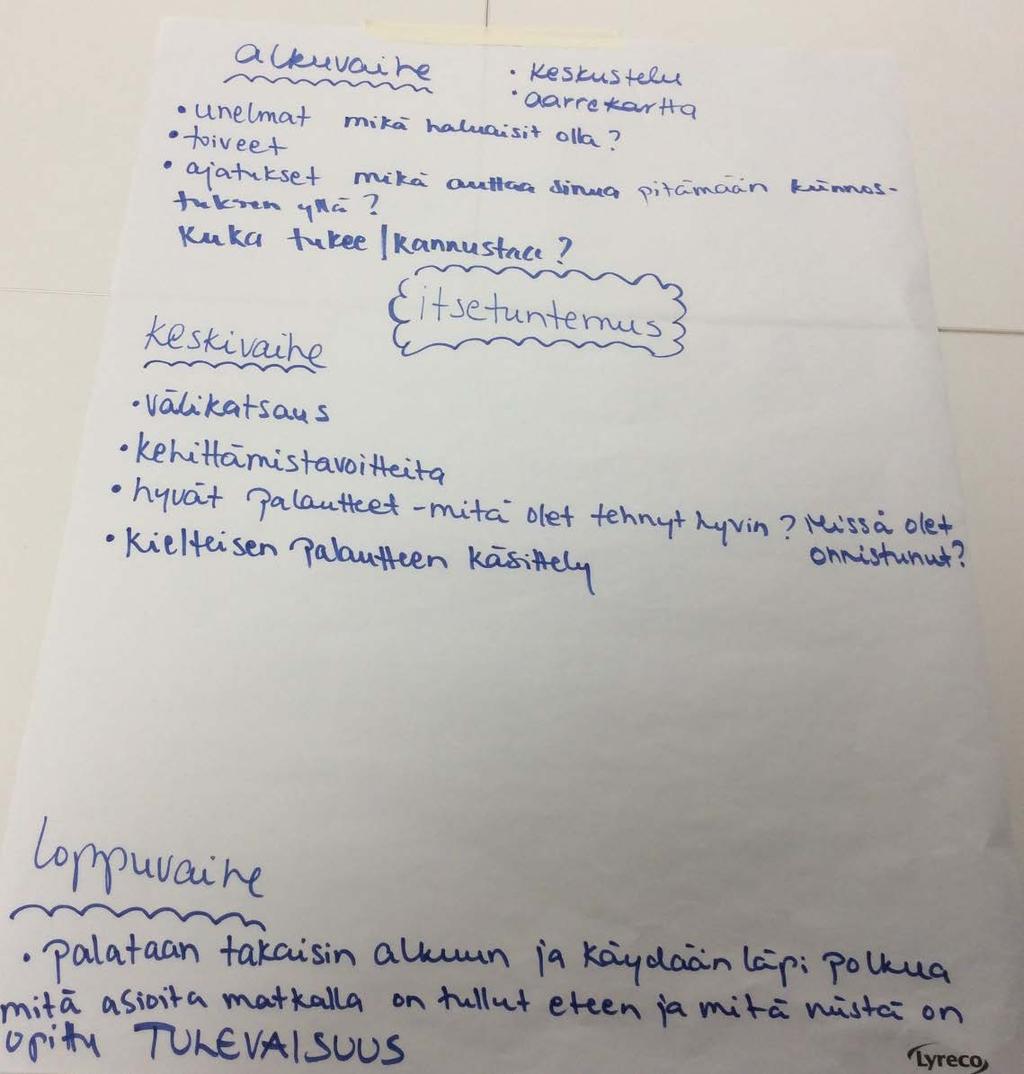 alkuvaihe
• keskustelu
• aarrekartta
• unelmat mikä haluaisit olla?
• toiveet
• ajatukset mikä auttaa sinua pitämään kiinnos-
tuksen yllä?
Kuka tukee / kannustaa?
itsetuntemus
keskivaihe
• välikatsaus
• kehittämistavoitteita
• hyvät palautteet - mitä olet tehnyt hyvin? Missä olet
onnistunut?
• Kielteisen palautteen käsittely
loppuvaihe
• palataan takaisin alkuun ja käydään läpi polkua
mitä asioita matkalla on tullut eteen ja mitä niistä on
opittu TULEVAISUUS
Lyreco